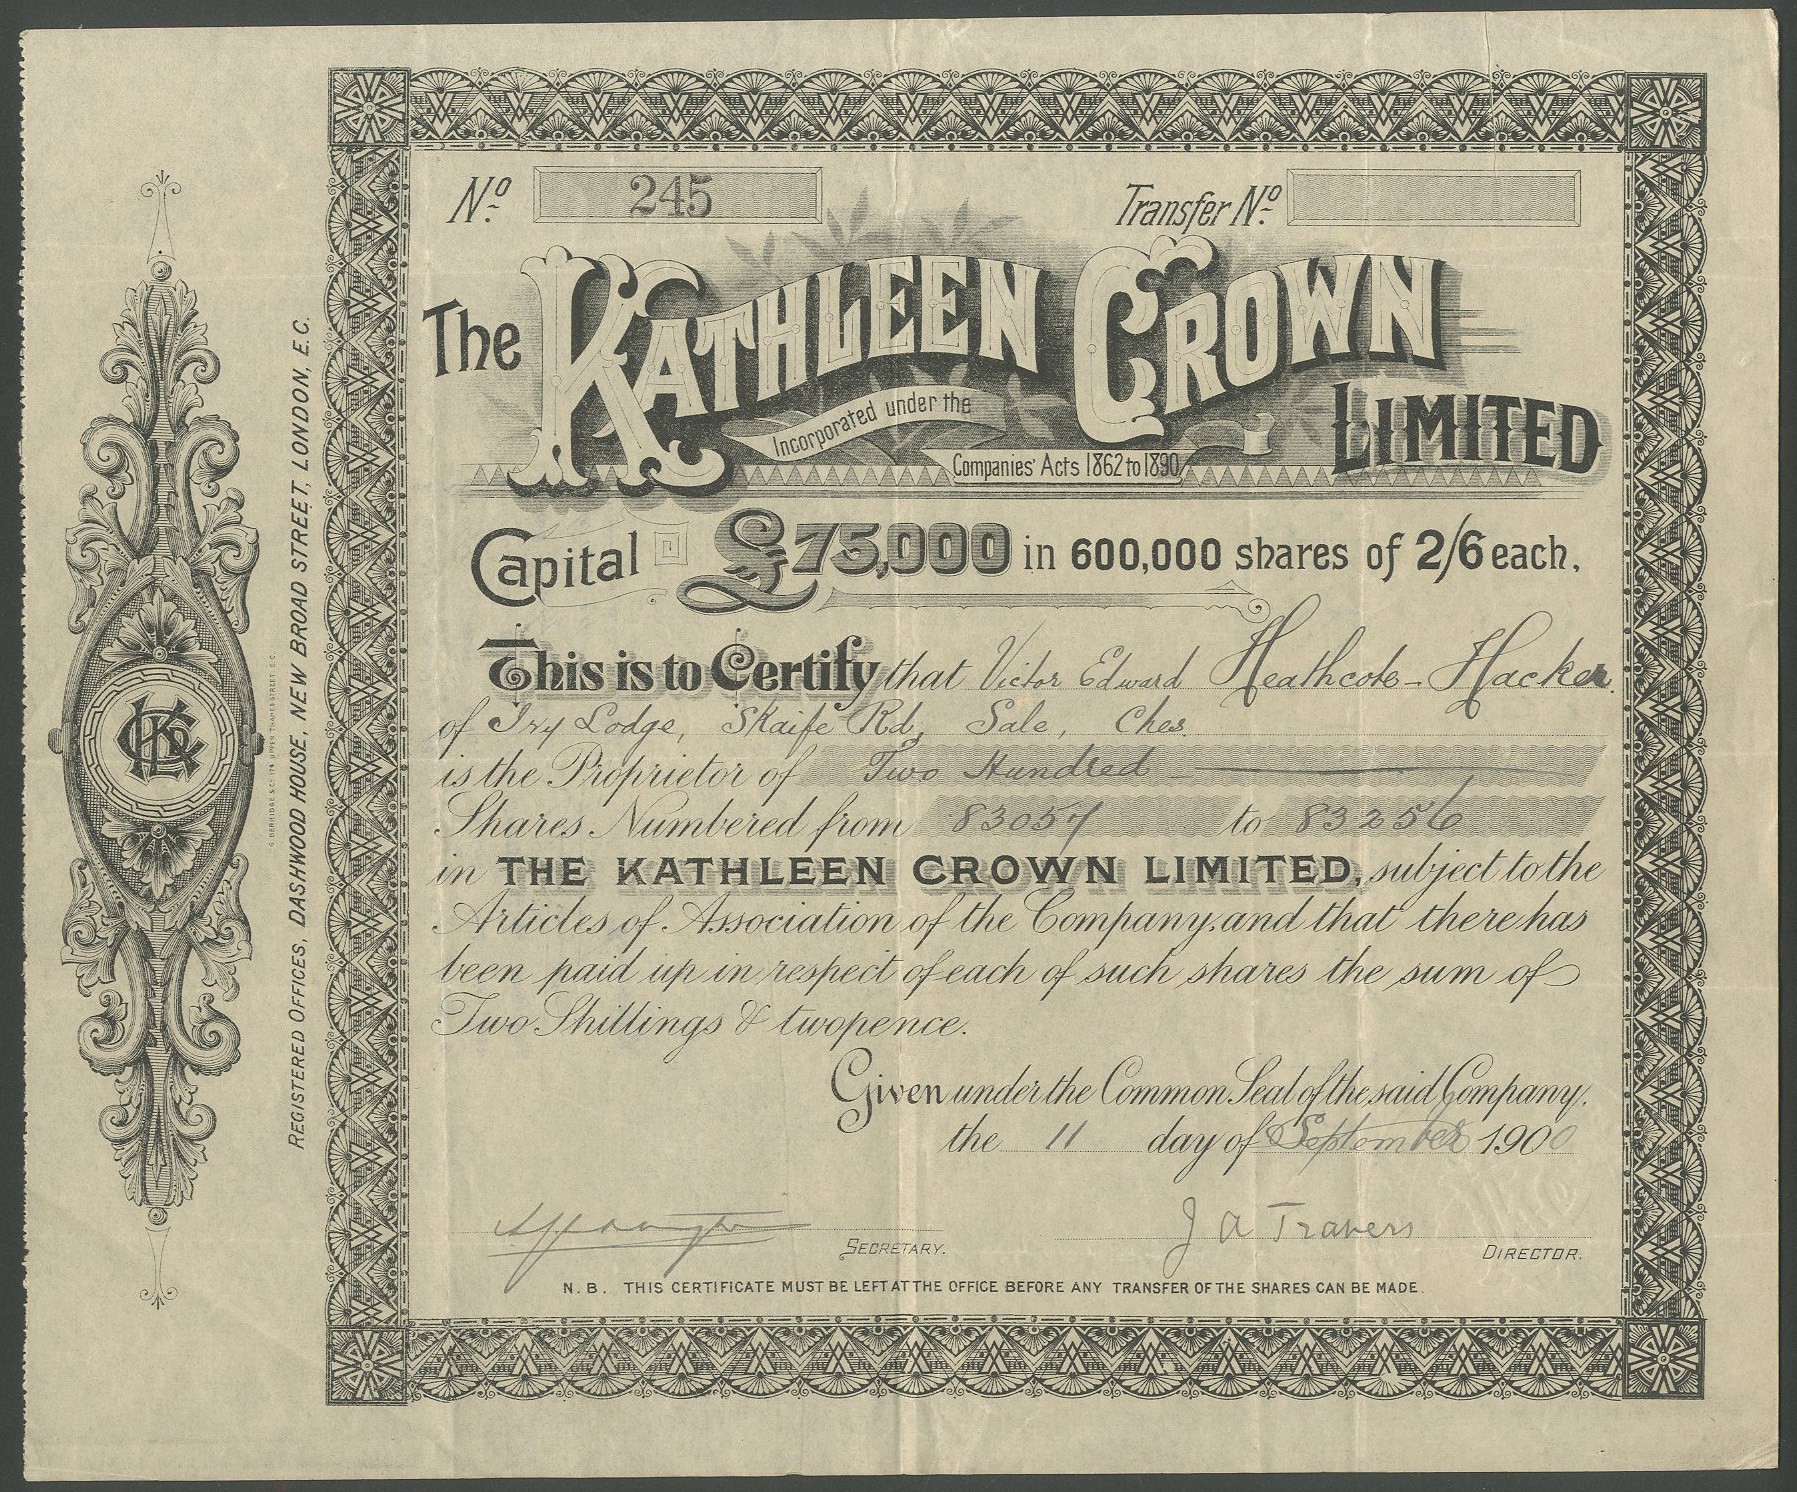 No. 245
Transfer No.
The KATHLEEN CROWN LIMITED
Incorporated under the
Companies' Acts 1862 to 1890
Capital £75,000 in 600,000 shares of 2/6 each.
This is to Certify that Victor Edward Heathcote-Hacker
of Ivy Lodge, Skaife Rd, Sale, Ches.
is the Proprietor of Two Hundred
Shares Numbered from 83057 to 83256
in THE KATHLEEN CROWN LIMITED, subject to the
Articles of Association of the Company, and that there has
been paid up in respect of each of such shares the sum of
Two Shillings & twopence.
Given under the Common Seal of the said Company,
the 11 day of September 1900
SECRETARY.
J A Travers
DIRECTOR.
N.B. THIS CERTIFICATE MUST BE LEFT AT THE OFFICE BEFORE ANY TRANSFER OF THE SHARES CAN BE MADE.
REGISTERED OFFICES, DASHWOOD HOUSE, NEW BROAD STREET, LONDON, E.C.
G. BERRIDGE & Co. 174 UPPER THAMES STREET. E.C.